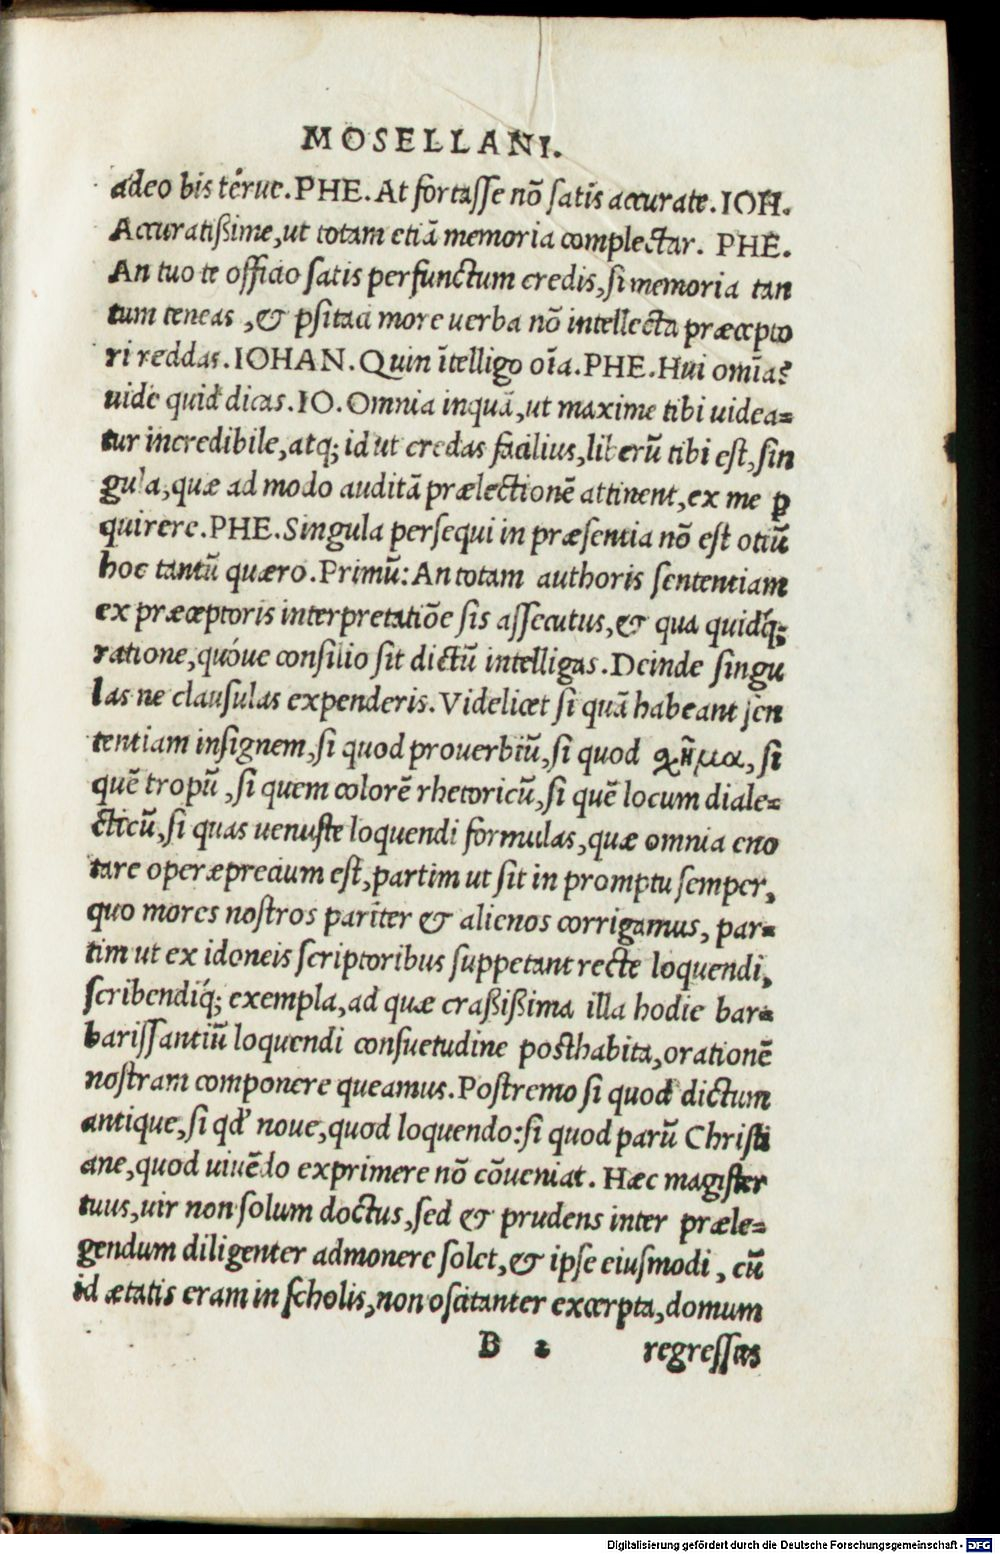 MOSELLANI.
adeo bis térue. PHE. At fortasse nō satis accurate. IOH.
Accuratißime, ut totam etiā memoria complectar. PHE.
An tuo te officio satis perfunctum credis, si memoria tan
tum teneas , & psitaci more uerba nō intellecta præcepto
ri reddas. IOHAN. Quin ītelligo oīa. PHE. Hui omīa?
uide quid dicas. IO. Omnia inquā, ut maxime tibi uidea=
tur incredibile, atq; id ut credas facilius, liberū tibi est, sin
gula, quæ ad modo auditā prælectionē attinent, ex me ꝑ
quirere. PHE. Singula persequi in præsentia nō est otiū
hoc tantū quæro. Primū: An totam authoris sententiam
ex præceptoris interpretatiōe sis assecutus, & qua quidq́;
ratione, quóue consilio sit dictū intelligas. Deinde singu
las ne clausulas expenderis. Videlicet si quā habeant sen
tentiam insignem, si quod prouerbiū, si quod χῆμα, si
quē tropū , si quem colorē rhetoricū, si quē locum diale=
cticū, si quas uenuste loquendi formulas, quæ omnia eno
tare operæprecium est, partim ut sit in promptu semper,
quo mores nostros pariter & alienos corrigamus, par=
tim ut ex idoneis scriptoribus suppetant recte loquendi,
scribendiq́; exempla, ad quæ craßißima illa hodie bar=
barissantiū loquendi consuetudine posthabita, orationē
nostram componere queamus. Postremo si quod dictum
antique, si qd' noue, quod loquendo: si quod parū Christi
ane, quod uiuēdo exprimere nō cōueniat. Hæc magister
tuus, uir non solum doctus, sed & prudens inter præle=
gendum diligenter admonere solet, & ipse eiusmodi , cū
id ætatis eram in scholis, non oscitanter excerpta, domum
B 2 regressus
Digitalisierung gefördert durch die Deutsche Forschungsgemeinschaft - DFG